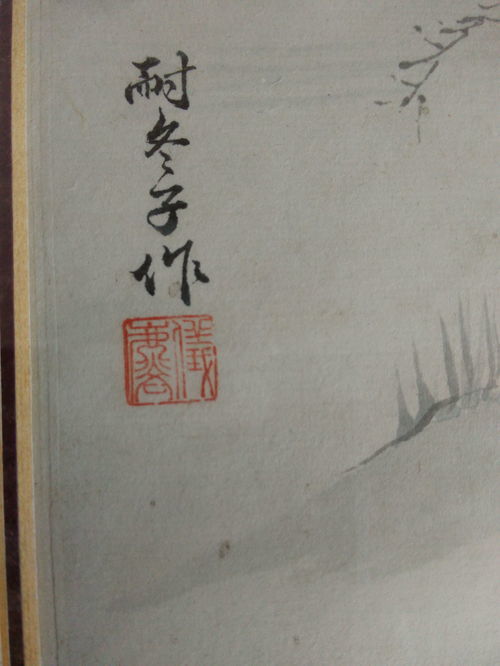 耐冬子作
儀